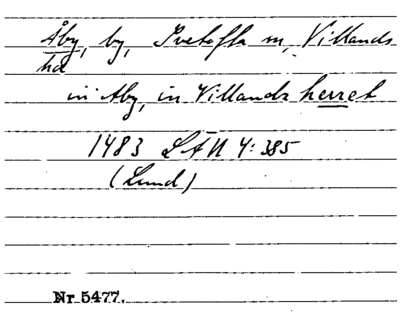 Åby, by, Ivetofta sn, Villands
hd
in Aby, in Villandz herret
1483 LÄU 4:385
(Lund)
Nr 5477.